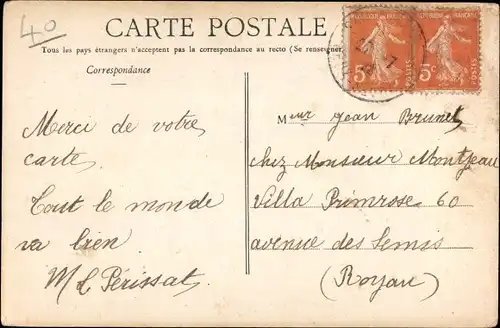 40
CARTE POSTALE
Tous les pays étrangers n'acceptent pas la correspondance au recto (Se renseigner
Correspondance
REPUBLIQUE FRANCAISE
REPUBLIQUE FRANCAISE
5c POSTES
5c POSTES
Merci de votre
carte
Tout le monde
va bien
M L Périssat
Meur Jean Brunet
chez Monsieur Montjeau
Villa Primrose 60
avenue des Semis
(Royan)